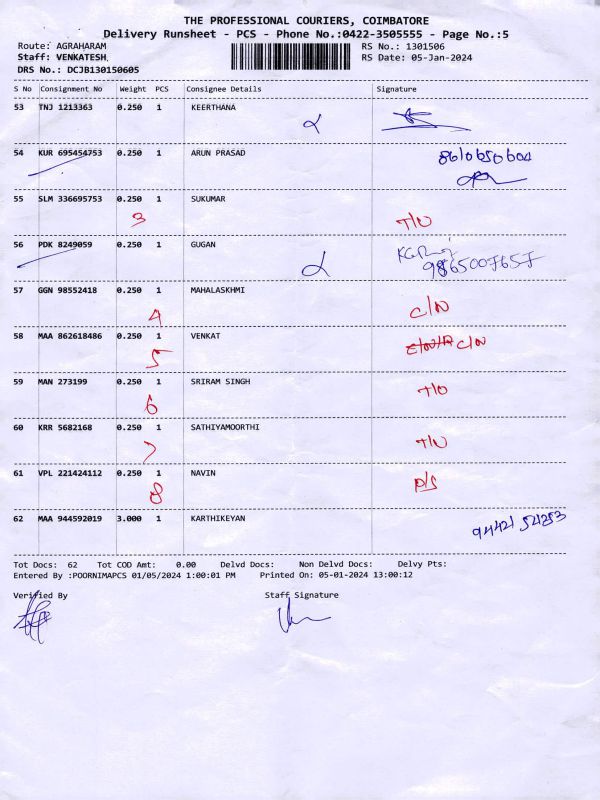 THE PROFESSIONAL COURIERS, COIMBATORE
Delivery Runsheet - PCS - Phone No.:0422-3505555 - Page No.:5
Route: AGRAHARAM RS No.: 1301506
Staff: VENKATESH. RS Date: 05-Jan-2024
DRS No.: DCJB130150605
S No Consignment No Weight PCS Consignee Details Signature
53 TNJ 1213363 0.250 1 KEERTHANA
54 KUR 695454753 0.250 1 ARUN PRASAD 8610650604
55 SLM 336695753 0.250 1 SUKUMAR
3 T/O
56 PDK 8249059 0.250 1 GUGAN
9865007657
57 GGN 98552418 0.250 1 MAHALASKHMI
4 C/N
58 MAA 862618486 0.250 1 VENKAT
5 C/N
59 MAN 273199 0.250 1 SRIRAM SINGH
6 T/O
60 KRR 5682168 0.250 1 SATHIYAMOORTHI
7 T/O
61 VPL 221424112 0.250 1 NAVIN
8 P/S
62 MAA 944592019 3.000 1 KARTHIKEYAN 9442154253
Tot Docs: 62 Tot COD Amt: 0.00 Delvd Docs: Non Delvd Docs: Delvy Pts:
Entered By :POORNIMAPCS 01/05/2024 1:00:01 PM Printed On: 05-01-2024 13:00:12
Verified By Staff Signature